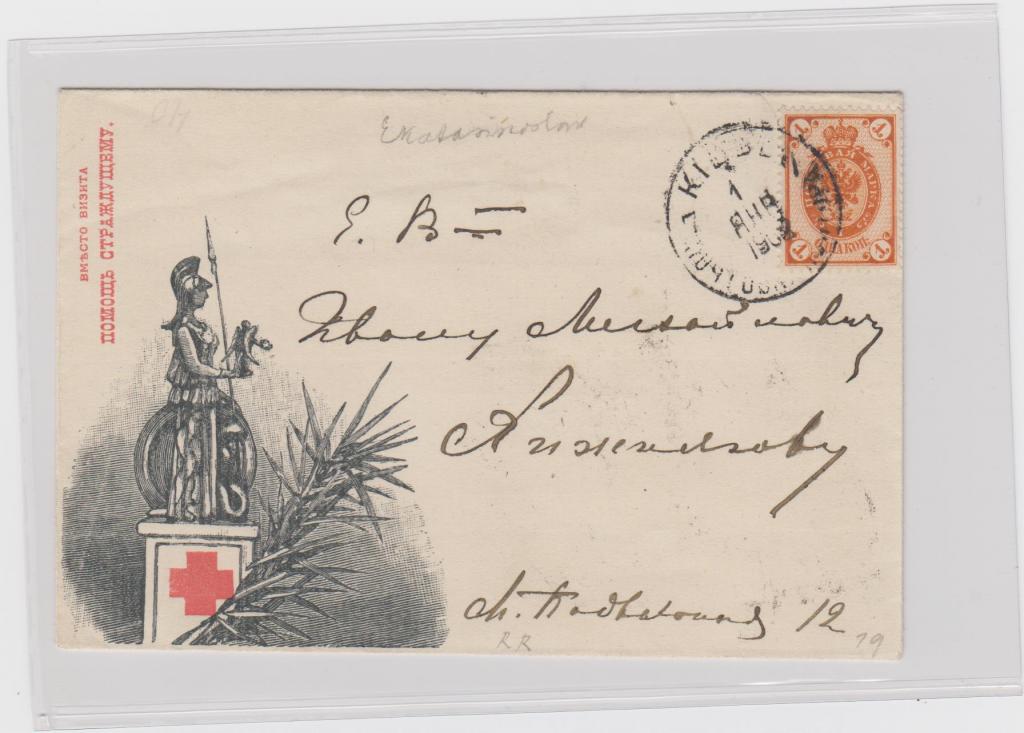 ВМѢСТО ВИЗИТА
ПОМОЩЬ СТРАЖДУЩЕМУ.
Ekaterinoslav
КІЕВЪ
1
ЯНВ
190
1 1
ПОЧТОВАЯ МАРКА
1 1
Е. В
Ивану Михайловичу
М. Подвальная 12
RR
19